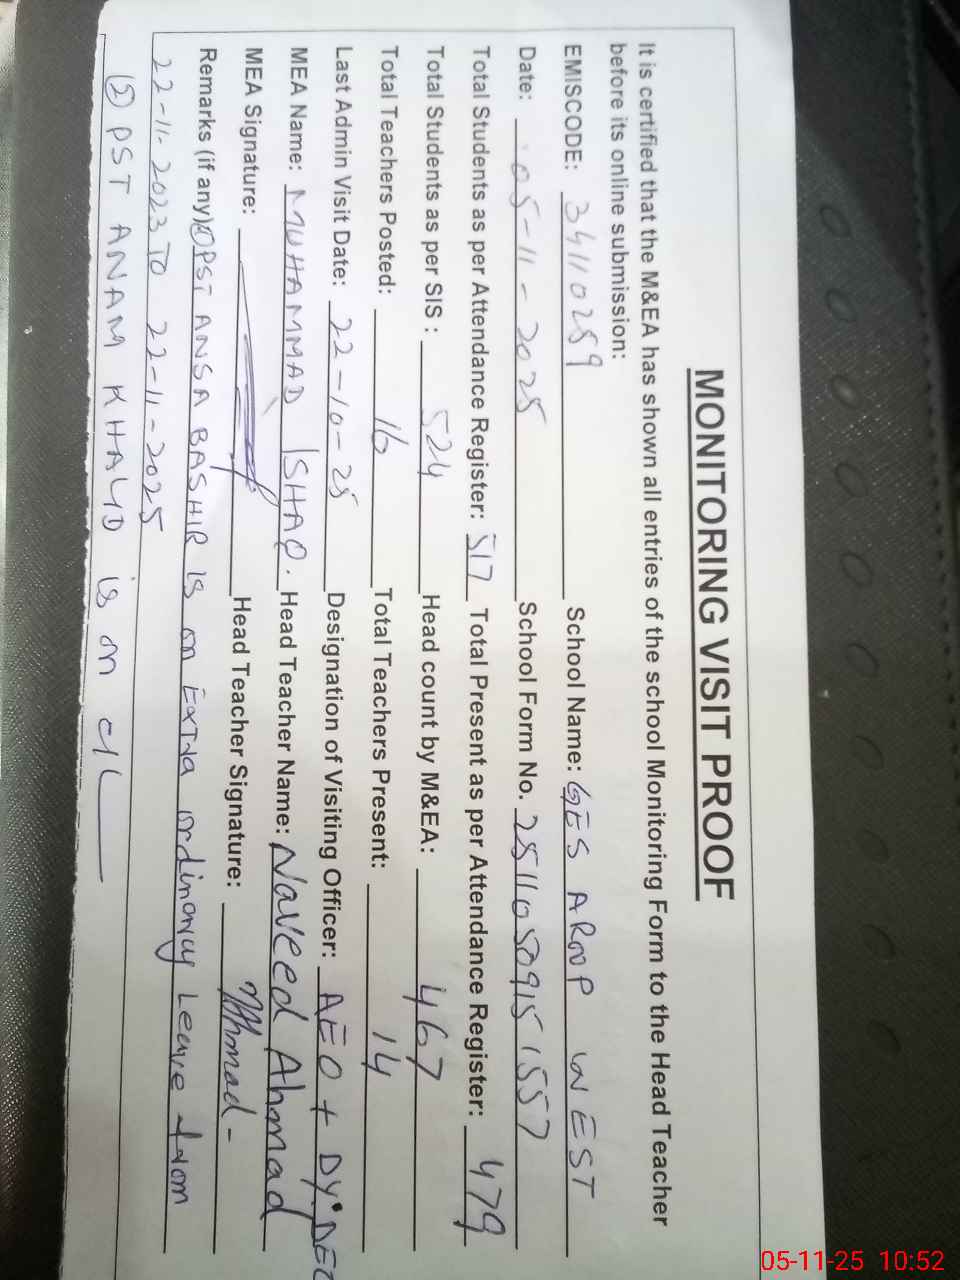 MONITORING VISIT PROOF
It is certified that the M&EA has shown all entries of the school Monitoring Form to the Head Teacher
before its online submission:
EMISCODE: 34110259 School Name: GES AROOP WEST
Date: 05-11-2025 School Form No. 25110509151557
Total Students as per Attendance Register: 517 Total Present as per Attendance Register: 479
Total Students as per SIS : 524 Head count by M&EA: 467
Total Teachers Posted: 16 Total Teachers Present: 14
Last Admin Visit Date: 22-10-25 Designation of Visiting Officer: AEO + DY.DEO
MEA Name: MUHAMMAD ISHAQ. Head Teacher Name: Naveed Ahmad
MEA Signature: Head Teacher Signature: NAhmad-
Remarks (if any) ① PST ANSA BASHIR is on Extra ordinary Leave from
22-11-2023 TO 22-11-2025
② PST ANAM KHALID is on c/L
05-11-25 10:52